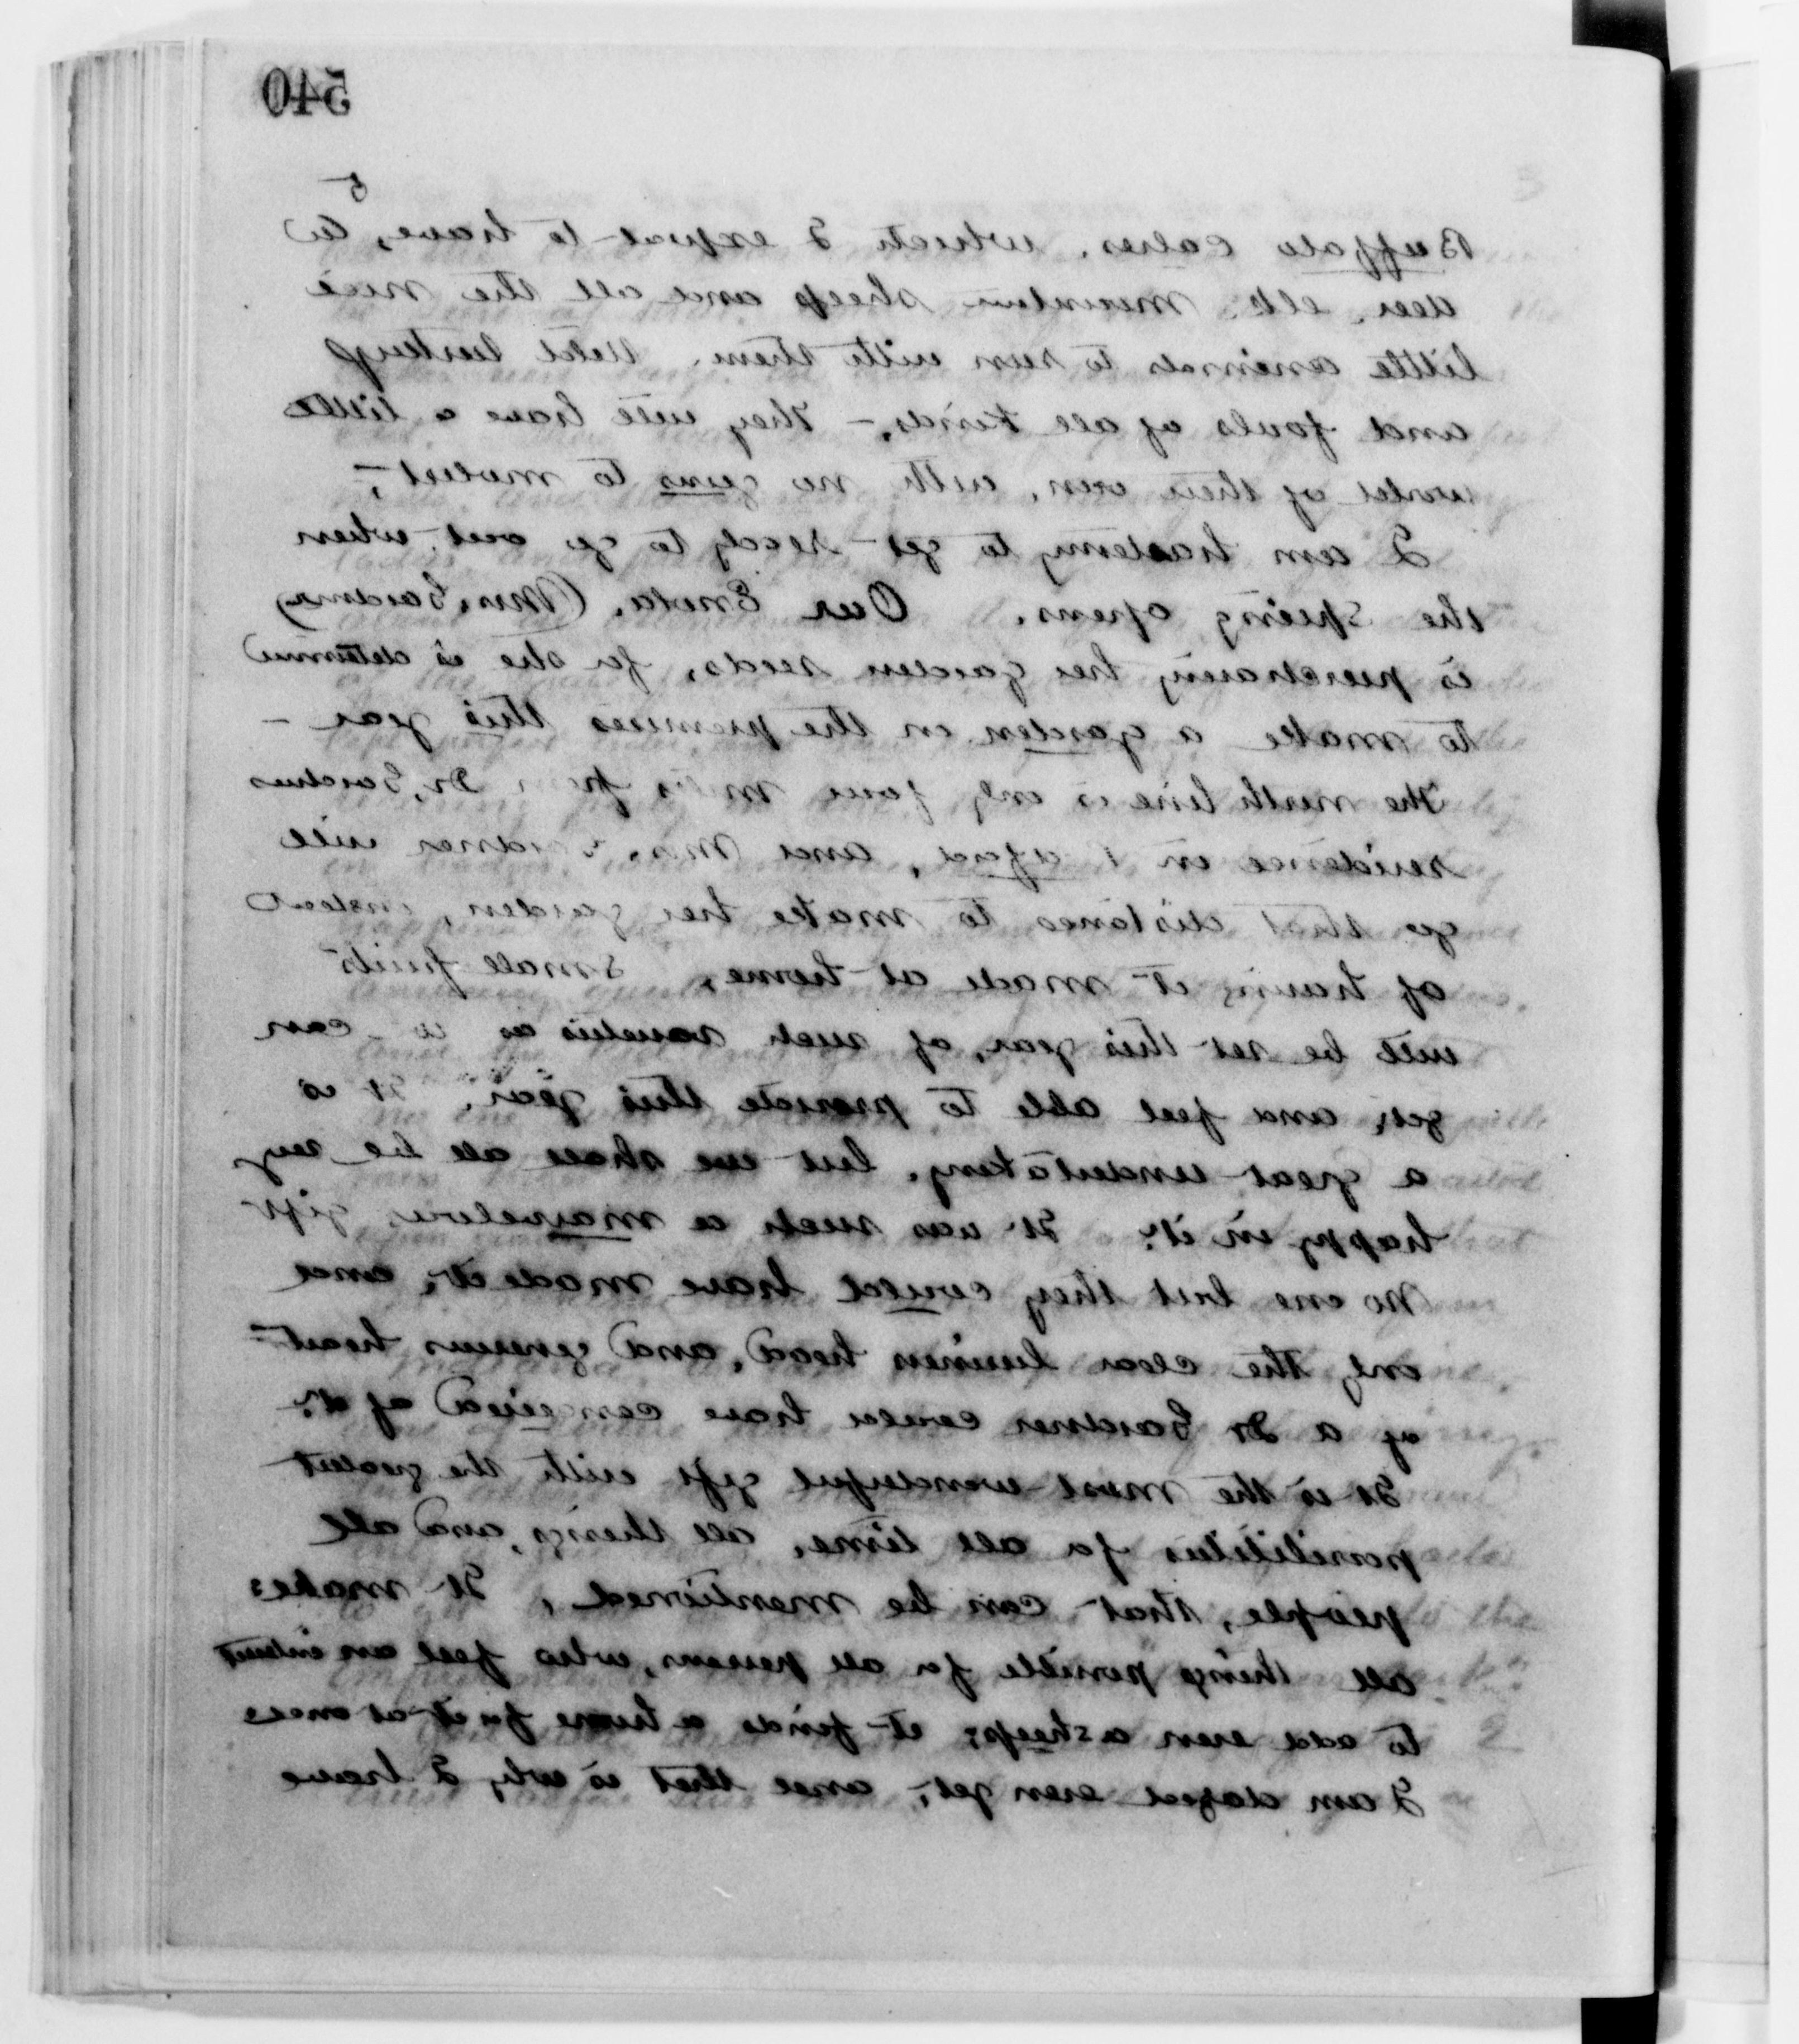 540
5
Buffalo calves, which I expect to have, a
deer, elk, mountain sheep and all the nice
little animals to run with them.
and fouls of all kinds. – They will have a little
world of their own, with no guns to molest; –
I am hastening to get ready to go out when
the Spring opens. Our Enola, (Mrs. Gardner)
is purchasing her garden seeds, for she is determined
to make a garden on the premises this year –
The north line is only four miles from Dr. Gardners
residence in Bedford, and Mrs. Gardner will
go that distance to make her garden, instead
of having it made at home. Small fruits
will be set this year, of such varieties as we can
get, and feel able to provide this year. It is
a great undertaking, but we shall all be very
happy in it. It was such a marvelous gift
No one but they could have made it, and
only the clear business head, and generous heart
of a Dr Gardner could have conceived of it.
It is the most wonderful gift with the greatest
possibilities for all time, all things, and all
people, that can be mentioned, It makes
all things possible for all persons, who feel an interest
to add even a sheep; it finds a home for it at once
I am dazed even yet, and that is why I have